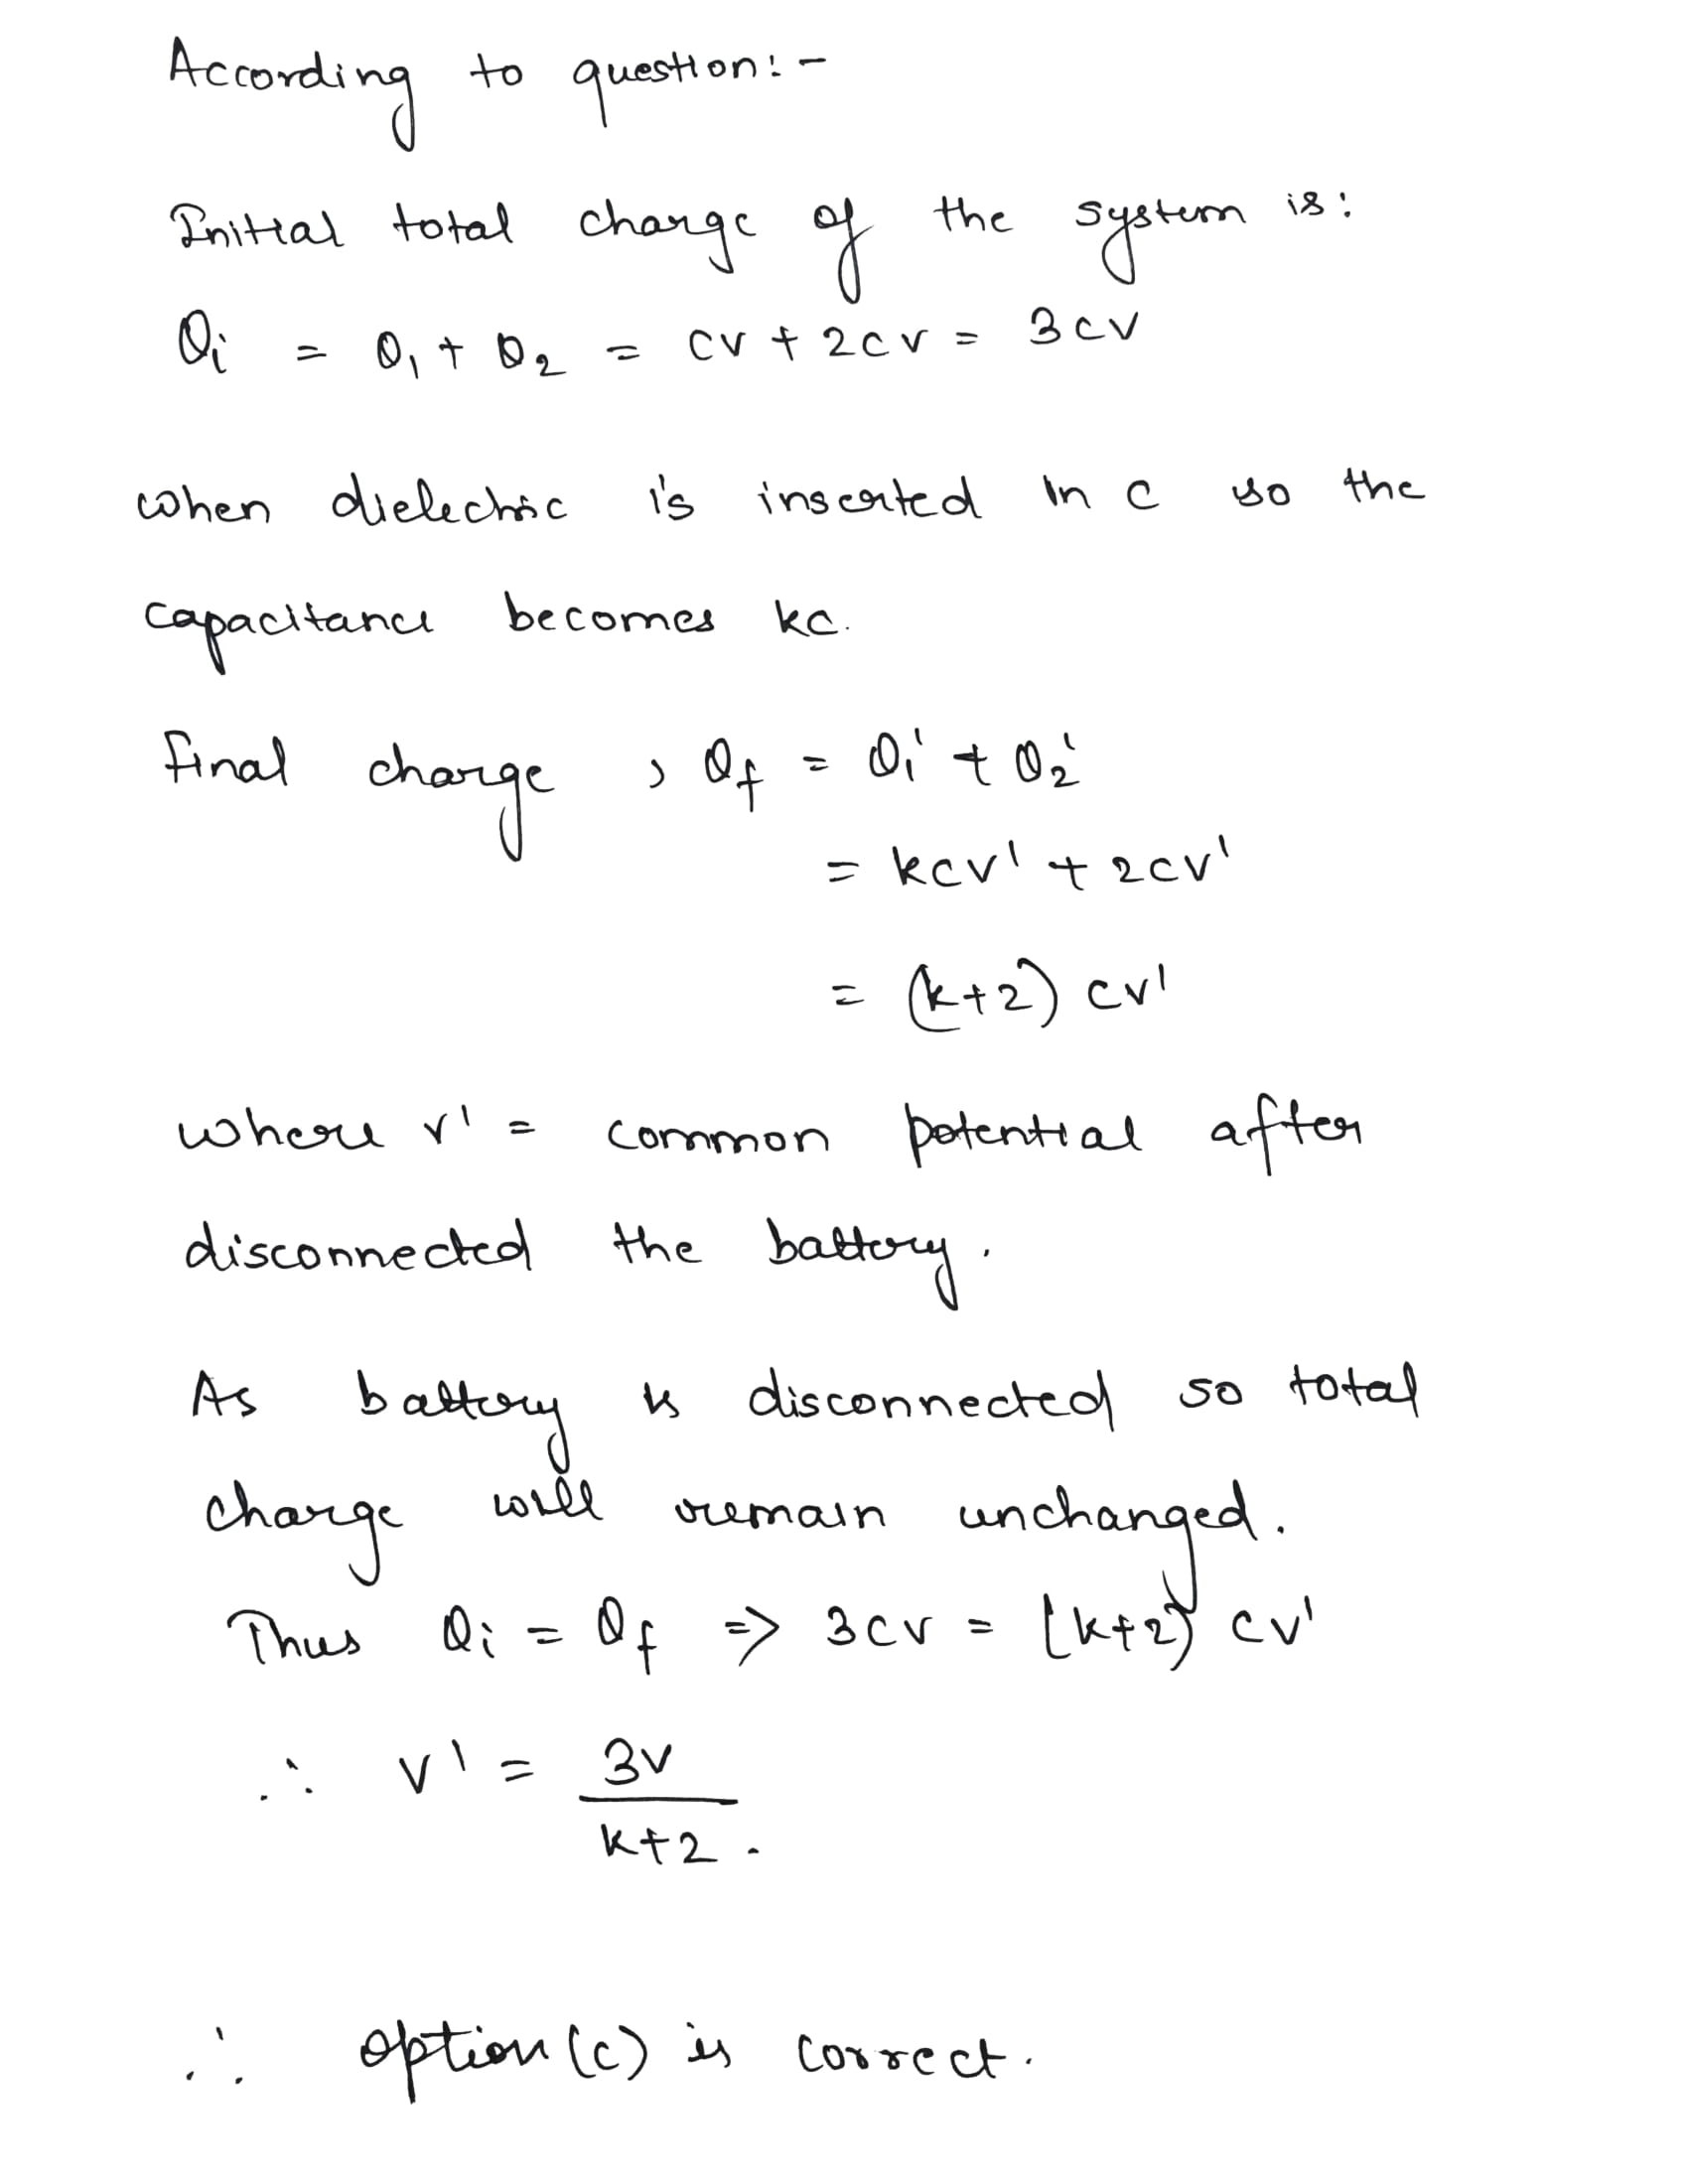 According to question:-
Initial total charge of the system is:
Qi = Q1 + Q2 = CV + 2CV = 3CV
when dielectric is inserted in C so the
capacitance becomes kC.
final charge , Qf = Q1' + Q2'
= kCV' + 2CV'
= (k+2) CV'
where V' = common potential after
disconnected the battery.
As battery is disconnected so total
charge will remain unchanged.
Thus Qi = Qf => 3CV = (k+2) CV'
∴ V' = 3V
k+2 .
∴ option (c) is correct.